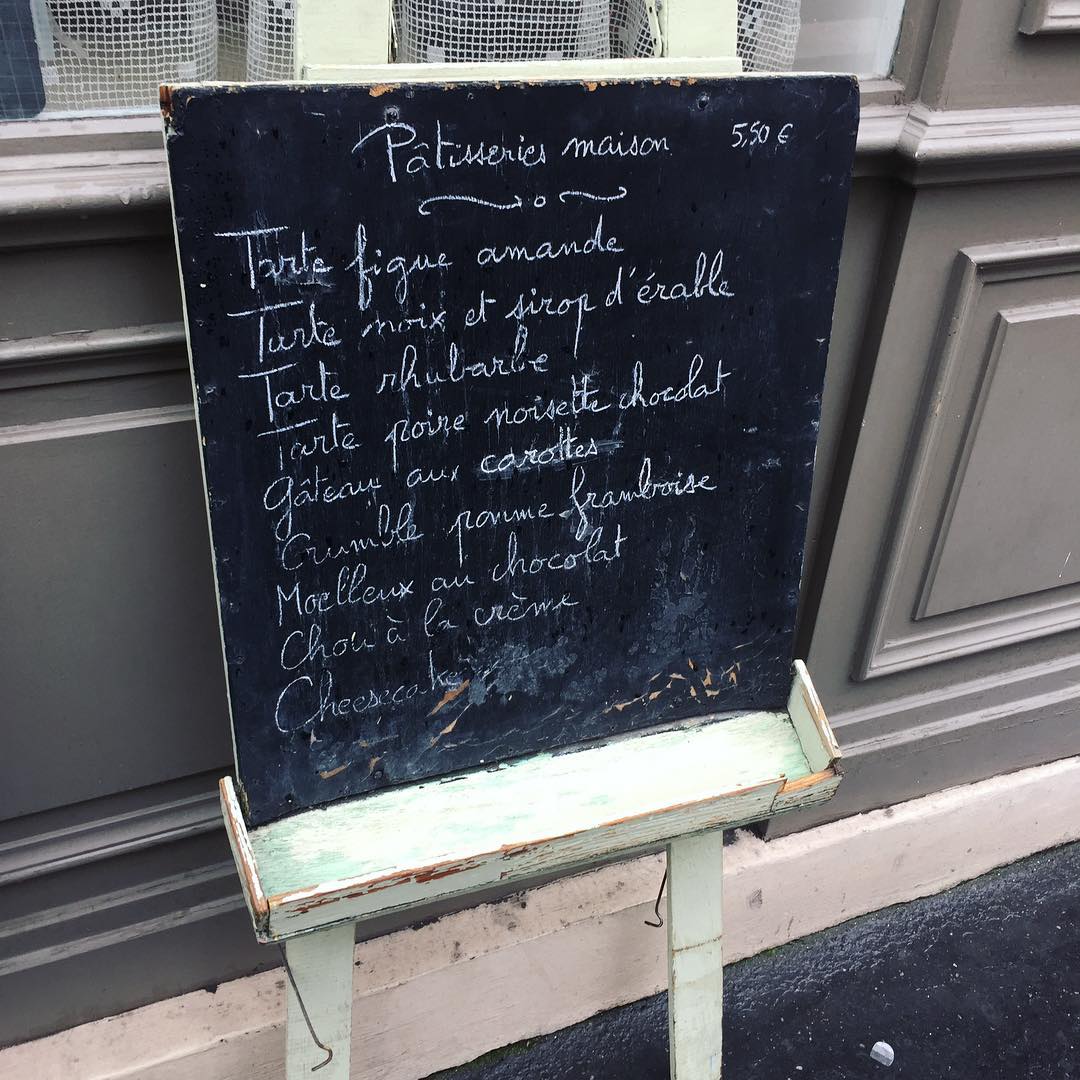 Pâtisseries maison 5,50 €
Tarte figue amande
Tarte noix et sirop d'érable
Tarte rhubarbe
Tarte poire noisette chocolat
Gâteau aux carottes
Crumble pomme framboise
Moelleux au chocolat
Chou à la crème
Cheesecake